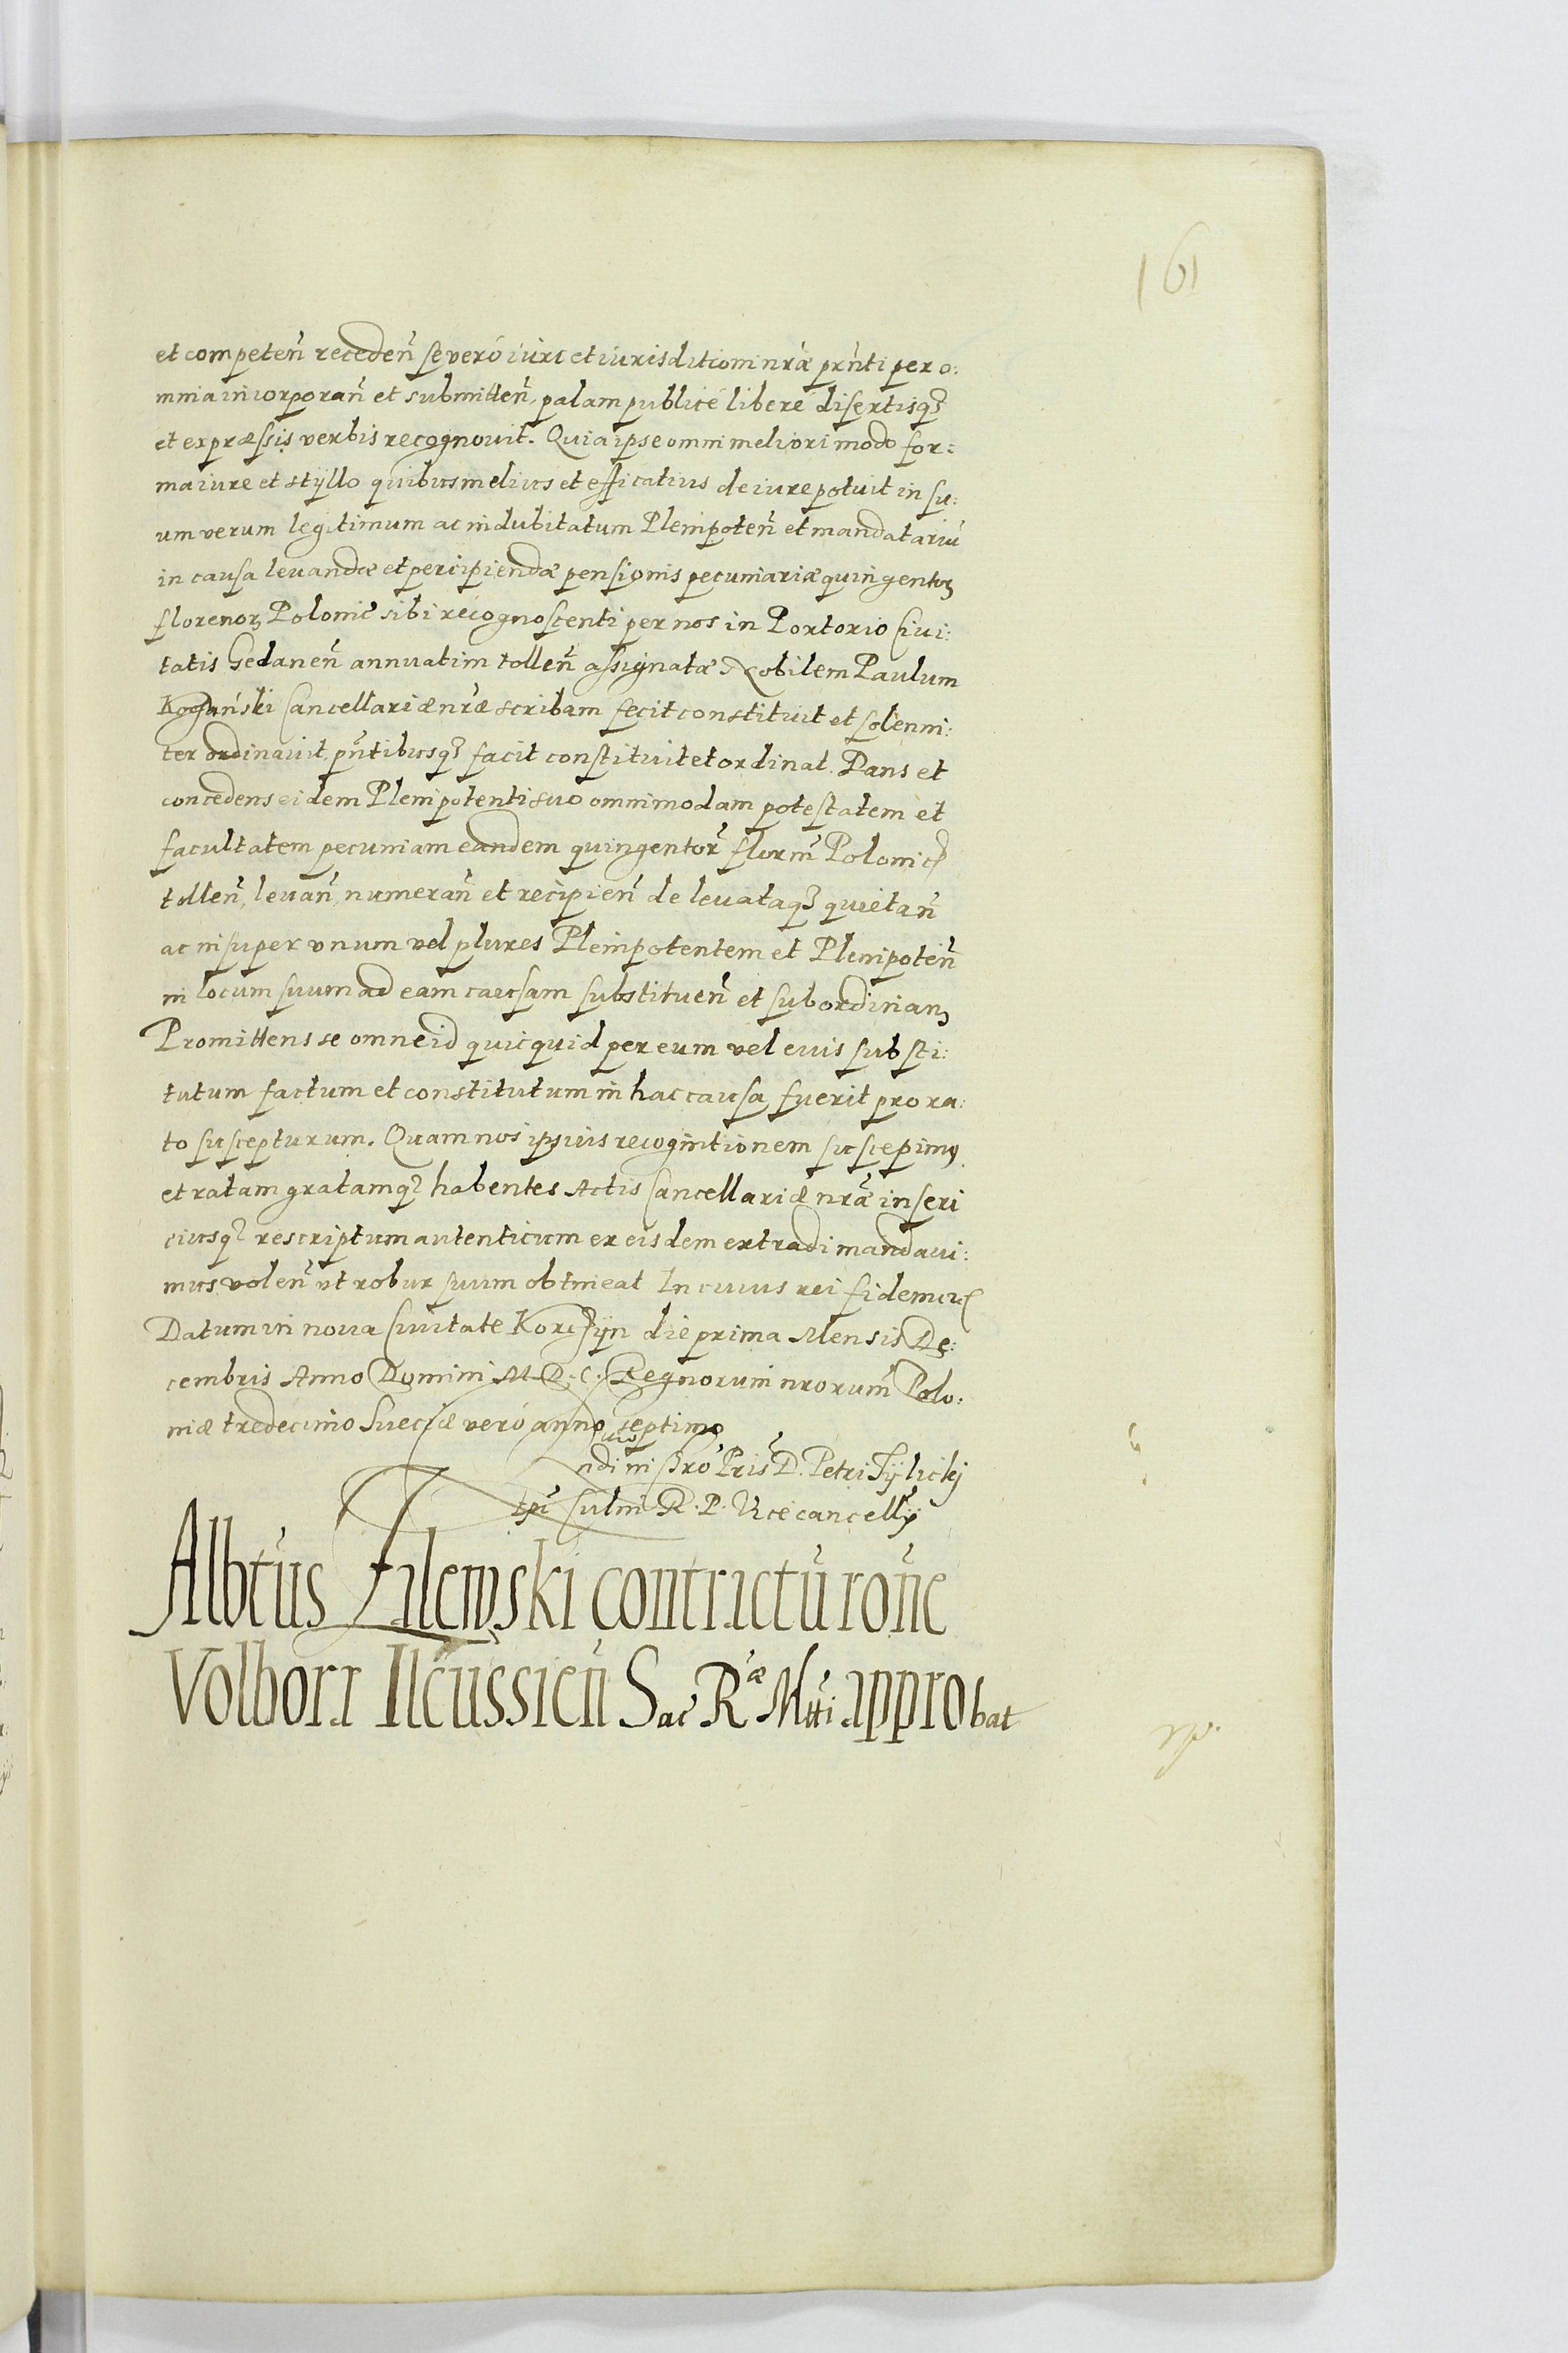 161
et competeñ recedeñ se vero iuri et iurisditioni nr̃æ pr̃nti per o:
mnia incorporañ et submitteñ, palam publicè liberè disertisq3
et expræssis verbis recognouit. Quia ipse omni meliori modo for:
ma iure et styllo quibus melius et efficatius de iure potuit in su:
um verum legitimum ac indubitatum Plenipoteñ et mandatariũ
in causa leuandæ et percipiendæ pensionis pecuniariæ quingentoꝝ
florenoꝝ Polonic̃ sibi recognoscenti per nos in Portorio Ciui:
tatis Gedaneñ annuatim tolleñ assignatæ Nobilem Paulum
Cancellariæ nr̃æ scribam fecit constituit et solenni:
ter ordinauit, pñtibusq3 facit constituit et ordinat. Dans et
concedens eidem Plenipotenti suo omnimodam potestatem et
facultatem pecuniam eandem quingentor̃ florñ Polonic̃
tolleñ, leuañ, numerañ et recipieñ de leuataq3 quietañ
ac insuper vnum vel plures Plenipotentem et Plenipoteñ
in locum suum ad eam causam substitueñ et subordinanꝫ
Promittens se omne id quicquid per eum vel euis substi:
tutum factum et constitutum in hac causa fuerit pro ra:
to suscepturum. Quam nos ipsius recognitionem suscepimꝰ
et ratam gratamq3 habentes Actis Cancellariæ nr̃æ inseri
eiusq3 rescriptum autenticum ex eisdem extradi mandaui:
mus, voleñ vt robur suum obtineat In cuius rei fidem etc
Datum in noua Ciuitate Korczÿn die prima Mensis De:
cembris Anno Domini M.D.C. Regnorum nrorum Polo:
niæ tredecimo Sueciæ verò anno septimo
D. Petri Tÿlickj
Epĩ Culmeñ R. P. Vicecancellÿ
Albtus Filewski contractũ roñe
Volborz Ilcussieñ Sac̃ Ræ Mtti approbat